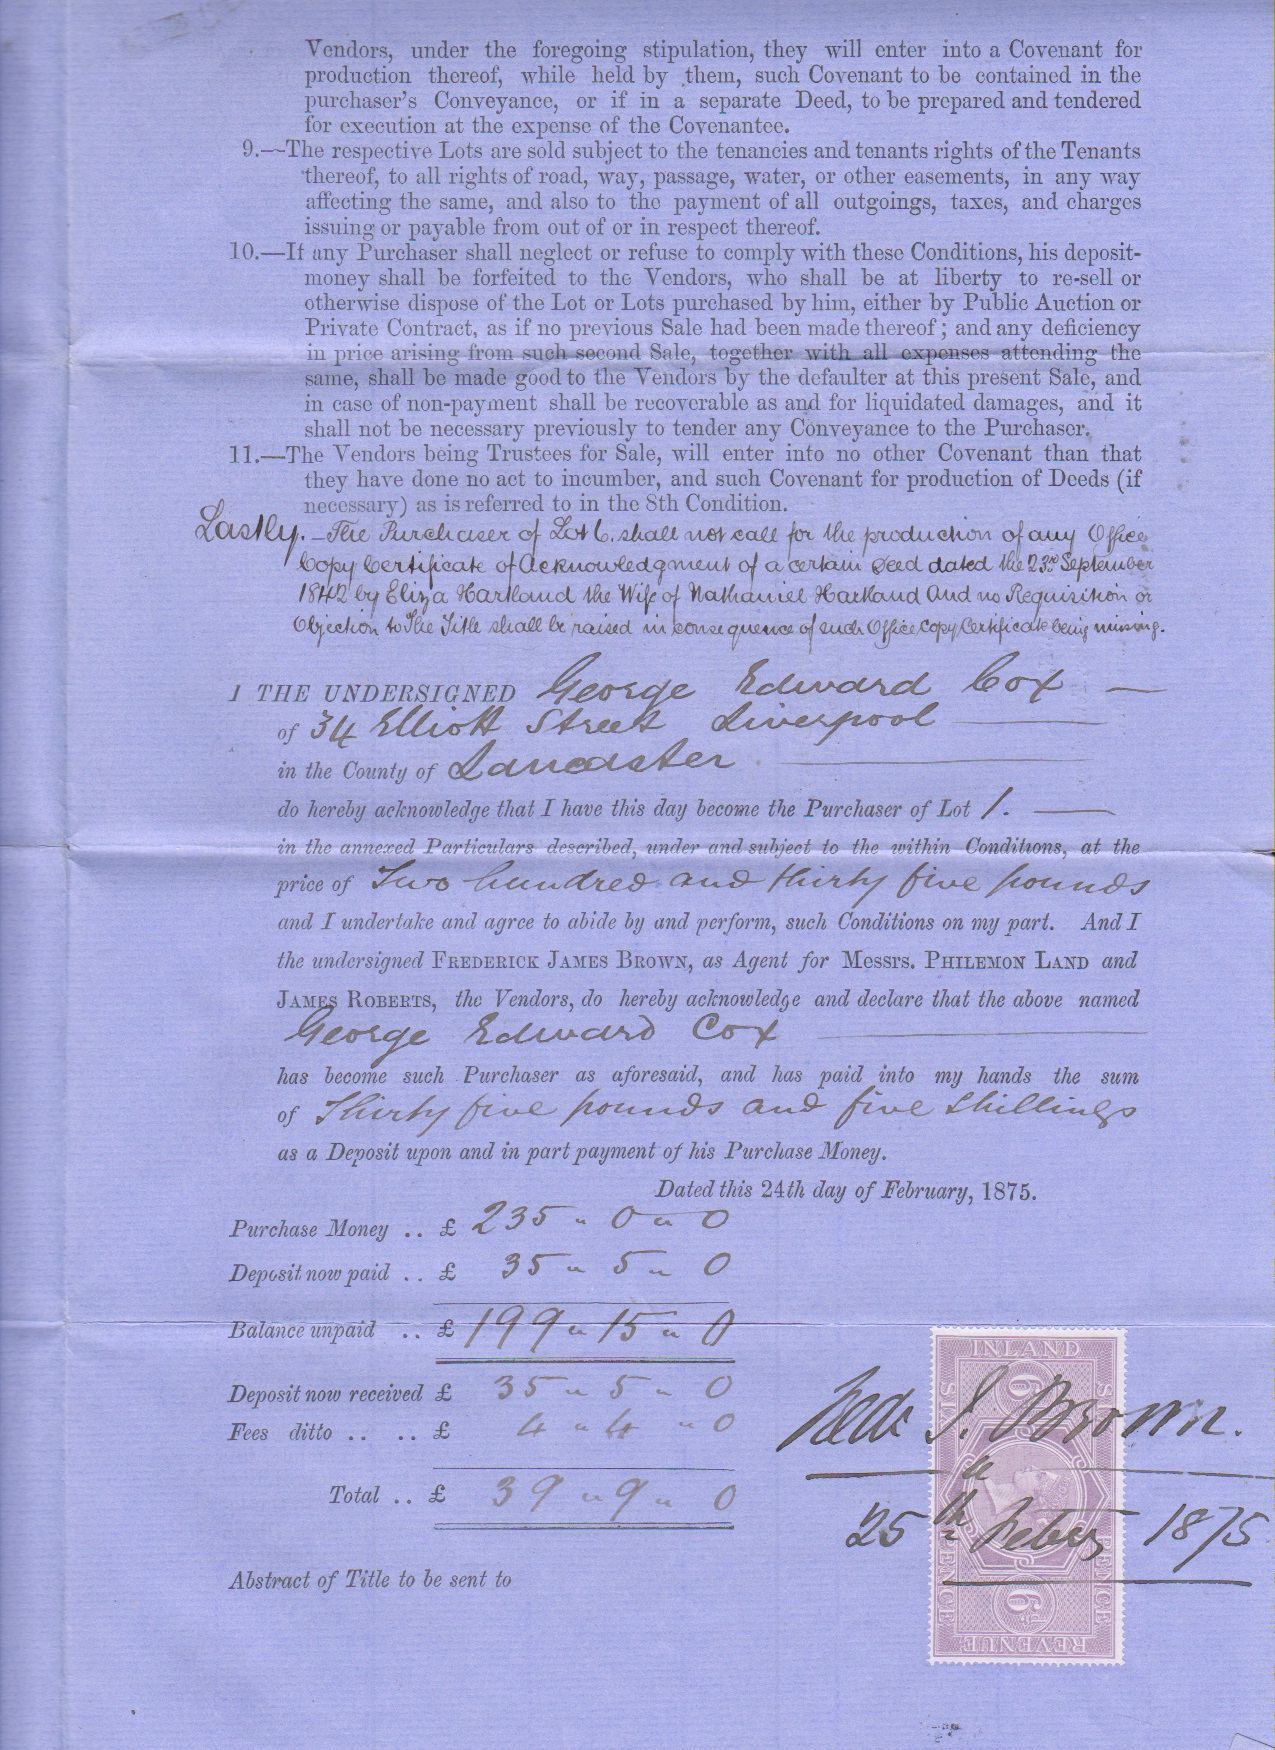 Vendors, under the foregoing stipulation, they will enter into a Covenant for
production thereof, while held by them, such Covenant to be contained in the
purchaser's Conveyance, or if in a separate Deed, to be prepared and tendered
for execution at the expense of the Covenantee.
9.—The respective Lots are sold subject to the tenancies and tenants rights of the Tenants
thereof, to all rights of road, way, passage, water, or other easements, in any way
affecting the same, and also to the payment of all outgoings, taxes, and charges
issuing or payable from out of or in respect thereof.
10.—If any Purchaser shall neglect or refuse to comply with these Conditions, his deposit-
money shall be forfeited to the Vendors, who shall be at liberty to re-sell or
otherwise dispose of the Lot or Lots purchased by him, either by Public Auction or
Private Contract, as if no previous Sale had been made thereof; and any deficiency
in price arising from such second Sale, together with all expenses attending the
same, shall be made good to the Vendors by the defaulter at this present Sale, and
in case of non-payment shall be recoverable as and for liquidated damages, and it
shall not be necessary previously to tender any Conveyance to the Purchaser.
11.—The Vendors being Trustees for Sale, will enter into no other Covenant than that
they have done no act to incumber, and such Covenant for production of Deeds (if
necessary) as is referred to in the 8th Condition.
Lastly.—The Purchaser of Lot 6. shall not call for the production of any Office
Copy Certificate of Acknowledgment of a certain Deed dated the 23rd September
1842 by Eliza Hartland the Wife of Nathaniel Hartland And no Requisition or
Objection to The Title shall be raised in consequence of such Office Copy Certificate being missing.
I THE UNDERSIGNED George Edward Cox —
of 34 Elliott Street Liverpool
in the County of Lancaster
do hereby acknowledge that I have this day become the Purchaser of Lot 1. —
in the annexed Particulars described, under and subject to the within Conditions, at the
price of Two hundred and thirty five pounds
and I undertake and agree to abide by and perform, such Conditions on my part. And I
the undersigned FREDERICK JAMES BROWN, as Agent for Messrs. PHILEMON LAND and
JAMES ROBERTS, the Vendors, do hereby acknowledge and declare that the above named
George Edward Cox
has become such Purchaser as aforesaid, and has paid into my hands the sum
of Thirty five pounds and five shillings
as a Deposit upon and in part payment of his Purchase Money.
Dated this 24th day of February, 1875.
Purchase Money .. £ 235 " 0 " 0
Deposit now paid .. £ 35 " 5 " 0
Balance unpaid .. £ 199 " 15 " 0
Deposit now received £ 35 " 5 " 0
Fees ditto .. .. £ 4 " 4 " 0
Total .. £ 39 " 9 " 0
Abstract of Title to be sent to
INLAND
REVENUE
SIX PENCE
SIX PENCE
6
6d
Fredk J. Brown.
25th Feby 1875